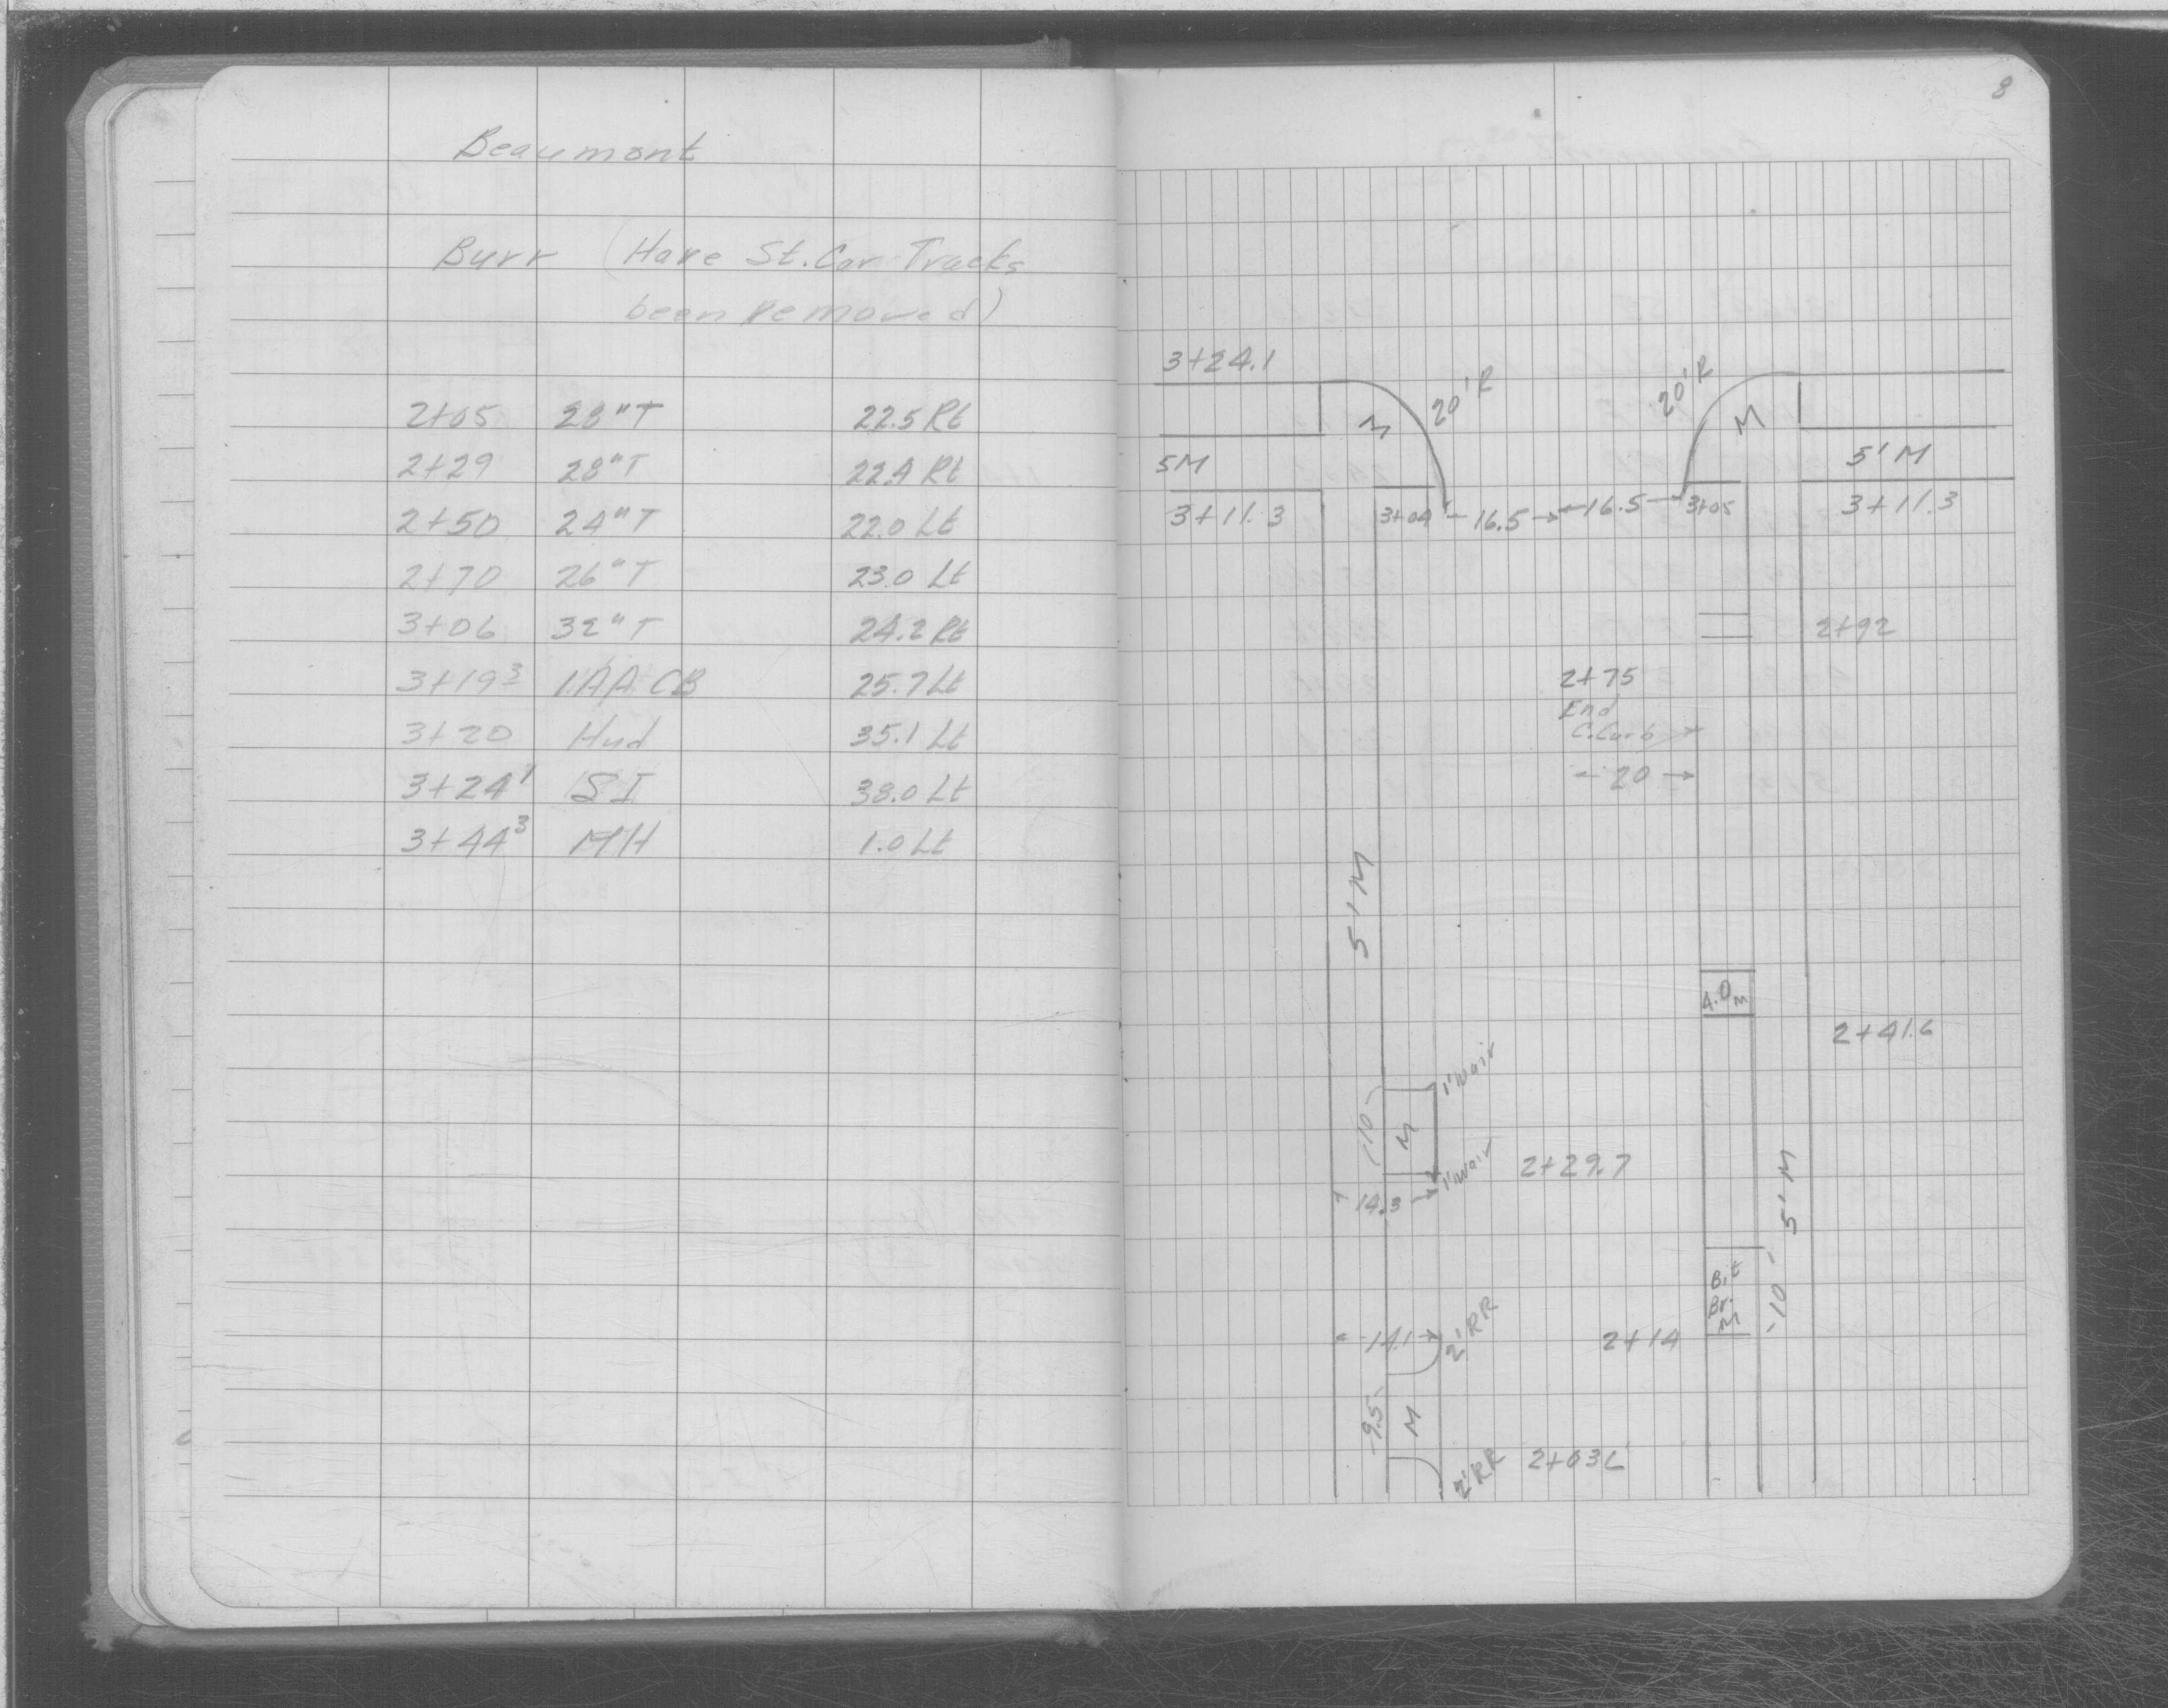 Beaumont
Burr (Have St. Car Tracks
been removed)
2+05 28"T 22.5 Rt
2+29 28"T 22.4 Rt
2+50 24"T 22.0 Lt
2+70 26"T 23.0 Lt
3+06 32"T 24.2 Rt
3+19³ 1AA CB 25.7 Lt
3+20 Hyd 35.1 Lt
3+24¹ SI 38.0 Lt
3+44³ MH 1.0 Lt
8
3+24.1
20'R 20'R
M M
5M 5'M
3+11.3 3+04 16.5 16.5 3+05 3+11.3
2+92
2+75
End
C.Curb
20
5'M
4.0 M
2+41.6
10 M
2+29.7
14.3
5'M
Bit
Br.
M
10
14.1 2'RR 2+14
9.5 M
2'RR